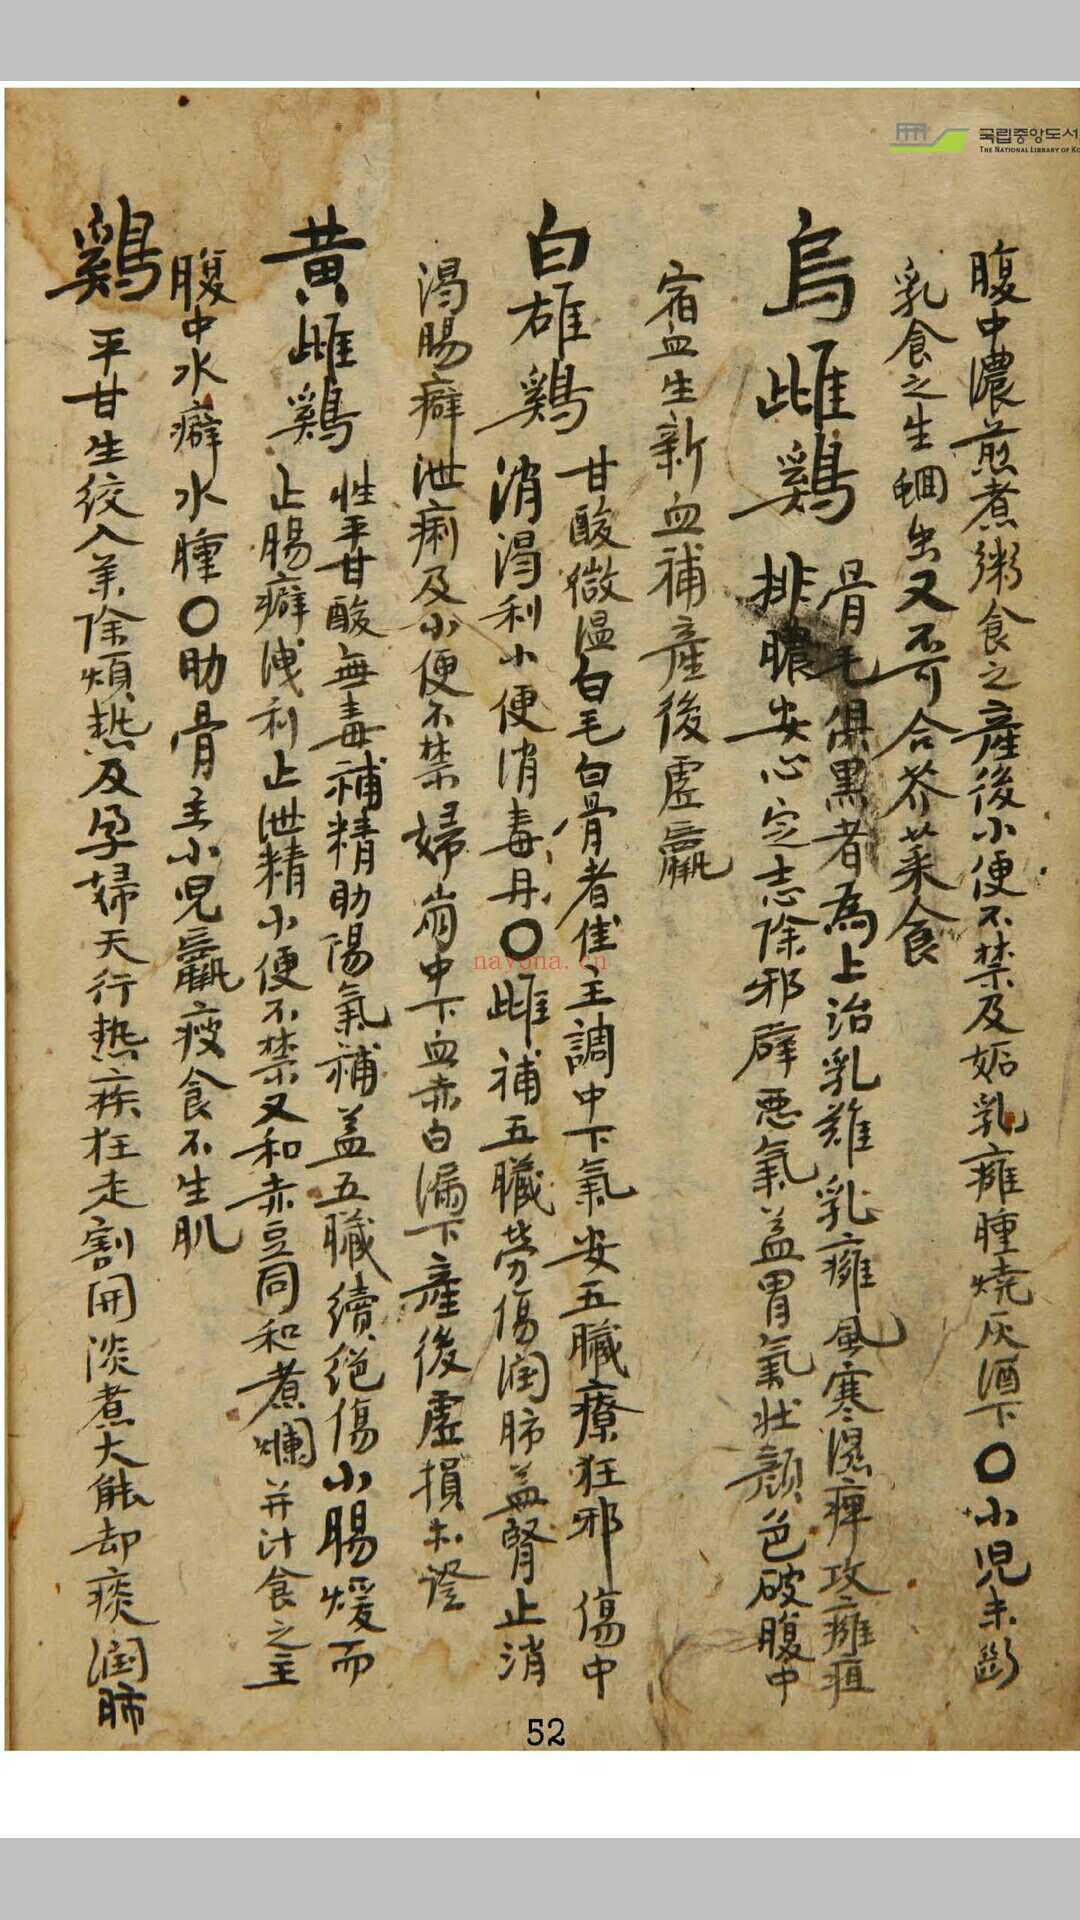 국립중앙도서
THE NATIONAL LIBRARY OF KO
腹中濃煎煮粥食之産後小便不禁及妬乳癰腫燒灰酒下〇小児未斷
乳食之生蛔虫又不可合芥菜食
烏雌鷄
骨毛俱黒者為上治乳難乳癰風寒濕痺攻癰疽
排膿安心定志除邪辟惡氣益胃氣壯顔色破腹中
宿血生新血補産後虛羸
白雄鷄
甘酸微温白毛白骨者佳主調中下氣安五臓療狂邪傷中
消渴利小便消毒丹〇雌補五臓勞傷潤肺益腎止消
渴腸癖泄痢及小便不禁婦崩中下血赤白漏下産後虛損
黄雌鷄
性平甘酸無毒補精助陽氣補益五臓續絶傷小腸煖而
止腸癖洩利止泄精小便不禁又和赤豆同和煮爛并汁食之主
腹中水癖水腫〇肋骨主小児羸瘦食不生肌
鷄
平甘生絞入羊除煩熱及孕婦天行熱疾狂走割開淡煮大能却痰潤肺
52
nayona.cn